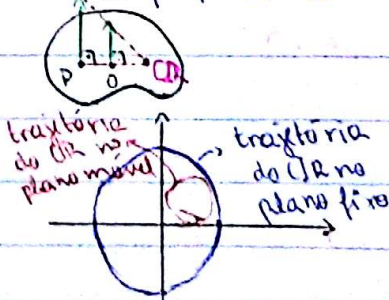 P O CIR
trajetória
do CIR no
plano móvel
trajetória
do CIR no
plano fixo